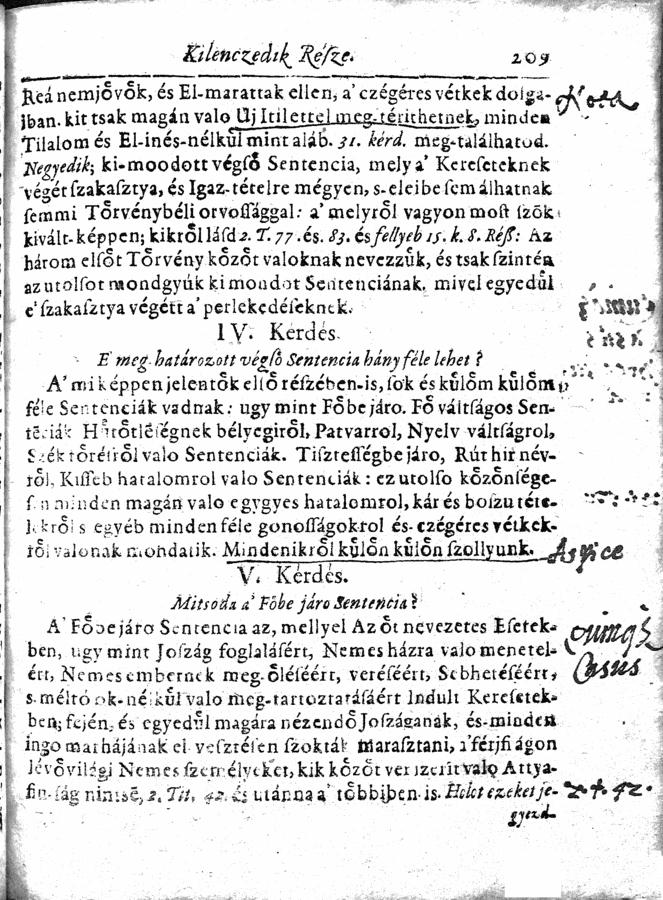 Kilenczedik Réſze. 209
Reá nemjȯvȯk, és El-marattak ellen, a' czégéres vétkek dolga-
iban. kit tsak magán valo Uj Itilettel meg-térithetnek, minden
Tilalom és El-inés-nélkůl mint aláb. 31. kérd. meg-találhatod. Nota
Negyedik; ki-moodott végsȯ Sentencia, mely a' Kereſeteknek
végét ſzakaſztya, és Igaz-tételre mégyen, s-eleibe ſem álhatnak
ſemmi Tȯrvénybéli orvoſſággal: a' melyrȯl vagyon moſt ſzȯk
kivált-képpen; kikrȯl láſd 2. T. 77. és. 83. és fellyeb 15. k. 8. Réſſ: Az
három elſȯt Tȯrvény kȯzȯt valoknak nevezzůk, és tsak ſzintén
az utolſot mondgyuk ki mondot Sentenciának. mivel egyedůl
e' ſzakaſztya végétt a' perlekedéſeknek.
IV. Kérdés.
E meg-határozott végſȯ Sentencia hány féle lehet?
A' miképpen jelentȯk elſȯ réſzében-is, ſok és kůlȯm kůlȯm
féle Sentenciák vadnak: ugy mint Fȯbe járo. Fȯ váltſágos Sen-
tẽciák Hůtȯtléſégnek bélyegirȯl, Patvarrol, Nyelv váltſágrol,
Szék tȯréſrȯl valo Sentenciák. Tiſzteſſégbe járo, Rút hir név-
rȯl, Kiſſeb hatalomrol valo Sentenciák: ez utolſo kȯzȯnſége-
ſen minden magán valo egygyes hatalomrol, kár és boſzu téte-
lekrȯl s egyéb minden féle gonoſſágokrol és czégéres vétkek-
rȯl valonak mondatik. Mindenikrȯl kůlȯn kůlȯn ſzollyunk.
V. Kérdés.
Mitsoda a' Fȯbe járo Sentencia?
A' Fȯbe járo Sentencia az, mellyel Az ȯt nevezetes Eſetek-
ben, ugy mint Joſzág foglaláſért, Nemes házra valo menetel-
ért, Nemes embernek meg-ȯléſéért, veréſéért, Sebhetéſéért,
s méltó ok-nélkůl valo meg-tartoztatáſáért Indult Kereſetek-
ben; fején, és egyedůl magára nézendȯ Joſzágának, és minden
ingo marhájának el-veſztéſen ſzokták maraſztani, a' férjfi ágon
lévȯ világi Nemes ſzemélyeket, kik kȯzȯt ver ſzerit valo Attya-
fiu-ſág nintsẽ, 2. Tit. 42. és utánna a' tȯbbiben is. Helot ezeket je- 2. t. 42.
gyezd-
Casus